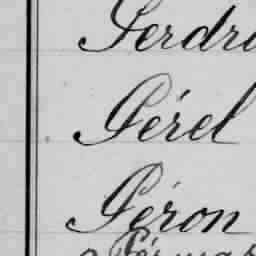 Perdri
Pérel
Péron